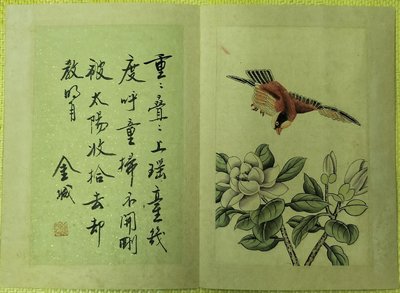 重〻叠〻上瑶臺幾
度呼童掃不開剛
被太陽收拾去却
教明月
金城